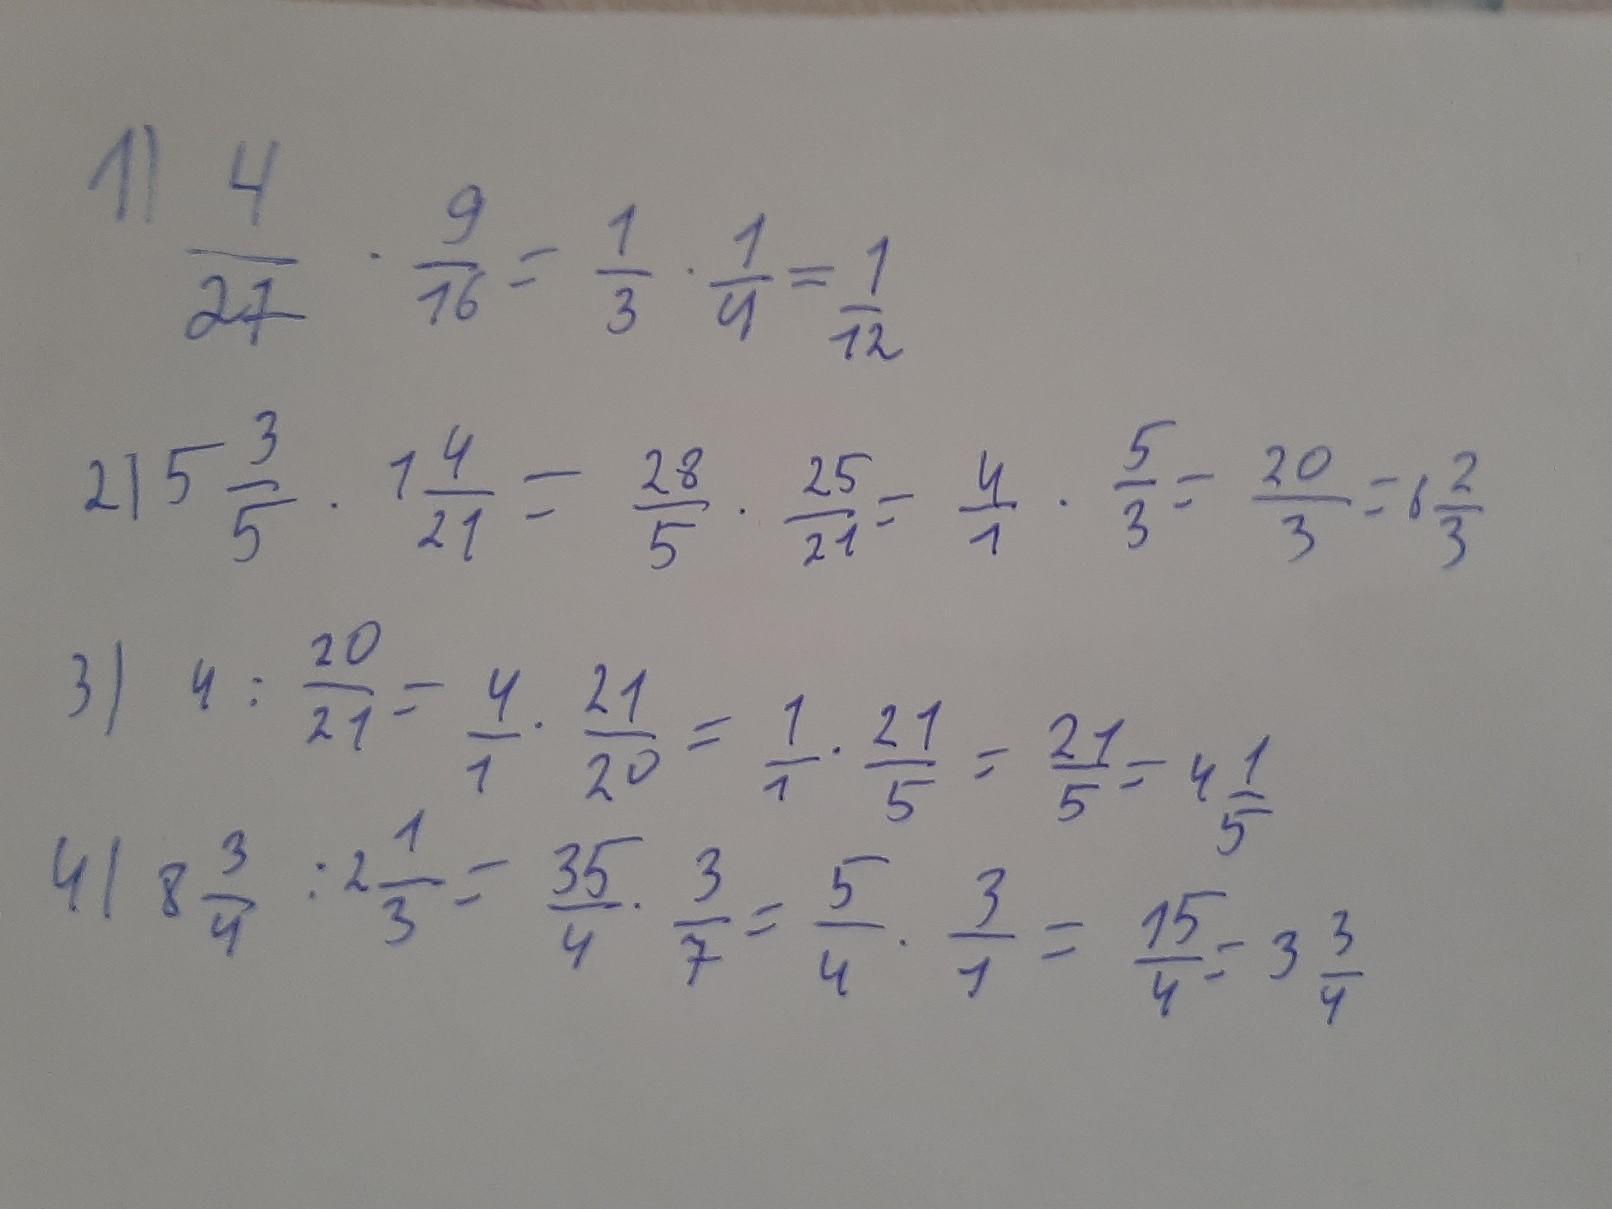 1) 4/27 · 9/16 = 1/3 · 1/4 = 1/12
2) 5 3/5 · 1 4/21 = 28/5 · 25/21 = 4/1 · 5/3 = 20/3 = 6 2/3
3) 4 : 20/21 = 4/1 · 21/20 = 1/1 · 21/5 = 21/5 = 4 1/5
4) 8 3/4 : 2 1/3 = 35/4 · 3/7 = 5/4 · 3/1 = 15/4 = 3 3/4